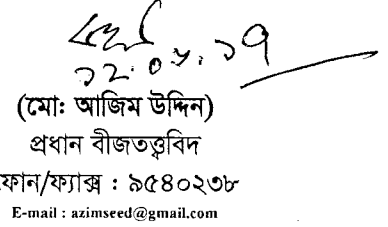 (মো: আজিম উদ্দিন)
প্রধান বীজতত্ত্ববিদ
ফোন/ফ্যাক্স : ৯৫৪০২৩৮
E-mail : azimseed@gmail.com